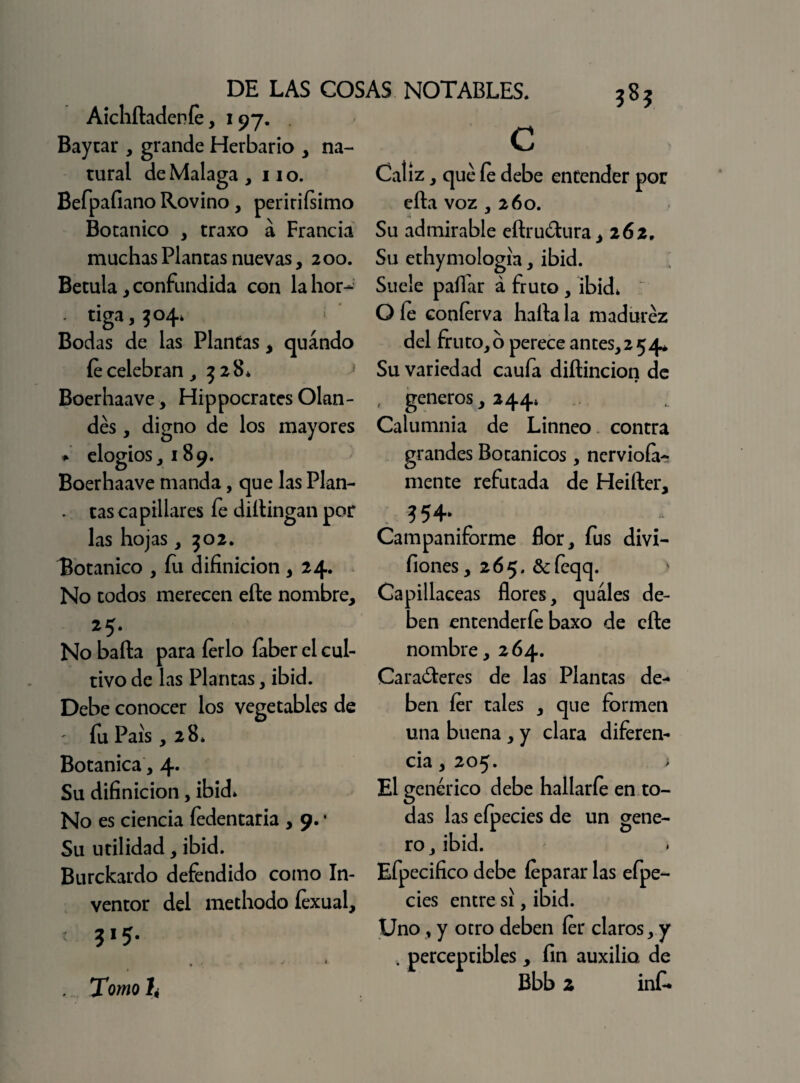 DE LAS COSAS NOTABLES. 383
Aichſtadenſe, 197.
Baytar , grande Herbario , na-
tural de Malaga , 110.
Beſpaſiano Rovino , peritiſsimo
Botanico , traxo à Francia
muchas Plantas nuevas, 200.
Betula , confundida con la hor-
tiga, 304.
Bodas de las Plantas , quándo
ſe celebran , 328.
Boerhaave, Hippocrates Olan-
dès , digno de los mayores
elogios, 189.
Boerhaave manda, que las Plan-
tas capillares ſe diſtingan por
las hojas , 302.
Botanico , ſu difinicion , 24.
No todos merecen eſte nombre,
25.
No baſta para ſerlo ſaber el cul-
tivo de las Plantas, ibid.
Debe conocer los vegetables de
ſu Paìs , 28.
Botanica , 4.
Su difinicion , ibid.
No es ciencia ſedentaria , 9.
Su utilidad , ibid.
Burckardo defendido como In-
ventor del methodo ſexual,
315.
Tomo I.
C
Caliz , què ſe debe entender por
eſta voz , 260.
Su admirable eſtructura, 262.
Su ethymologìa, ibid.
Suele paſſar à fruto , ibid.
O ſe conſerva haſta la madurèz
del fruto, ò perece antes, 254.
Su variedad cauſa diſtincion de
generos, 244.
Calumnia de Linneo contra
grandes Botanicos , nervioſa-
mente refutada de Heiſter,
354.
Campaniforme flor, ſus divi-
ſiones, 265. & ſeqq.
Capillaceas flores, quáles de-
ben entenderſe baxo de eſte
nombre, 264.
Caracteres de las Plantas de-
ben ſer tales , que formen
una buena , y clara diferen-
cia , 205.
El genérico debe hallarſe en to-
das las eſpecies de un gene-
ro, ibid.
Eſpecifico debe ſeparar las eſpe-
cies entre sì, ibid.
Uno , y otro deben ſer claros, y
perceptibles , ſin auxilio de
Bbb 2 inſ-